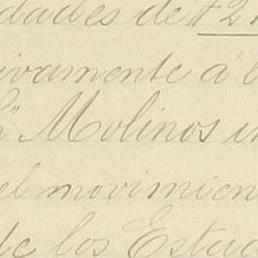 dades de $2
ivamente á
Molinos in
el movimien
de los Estad